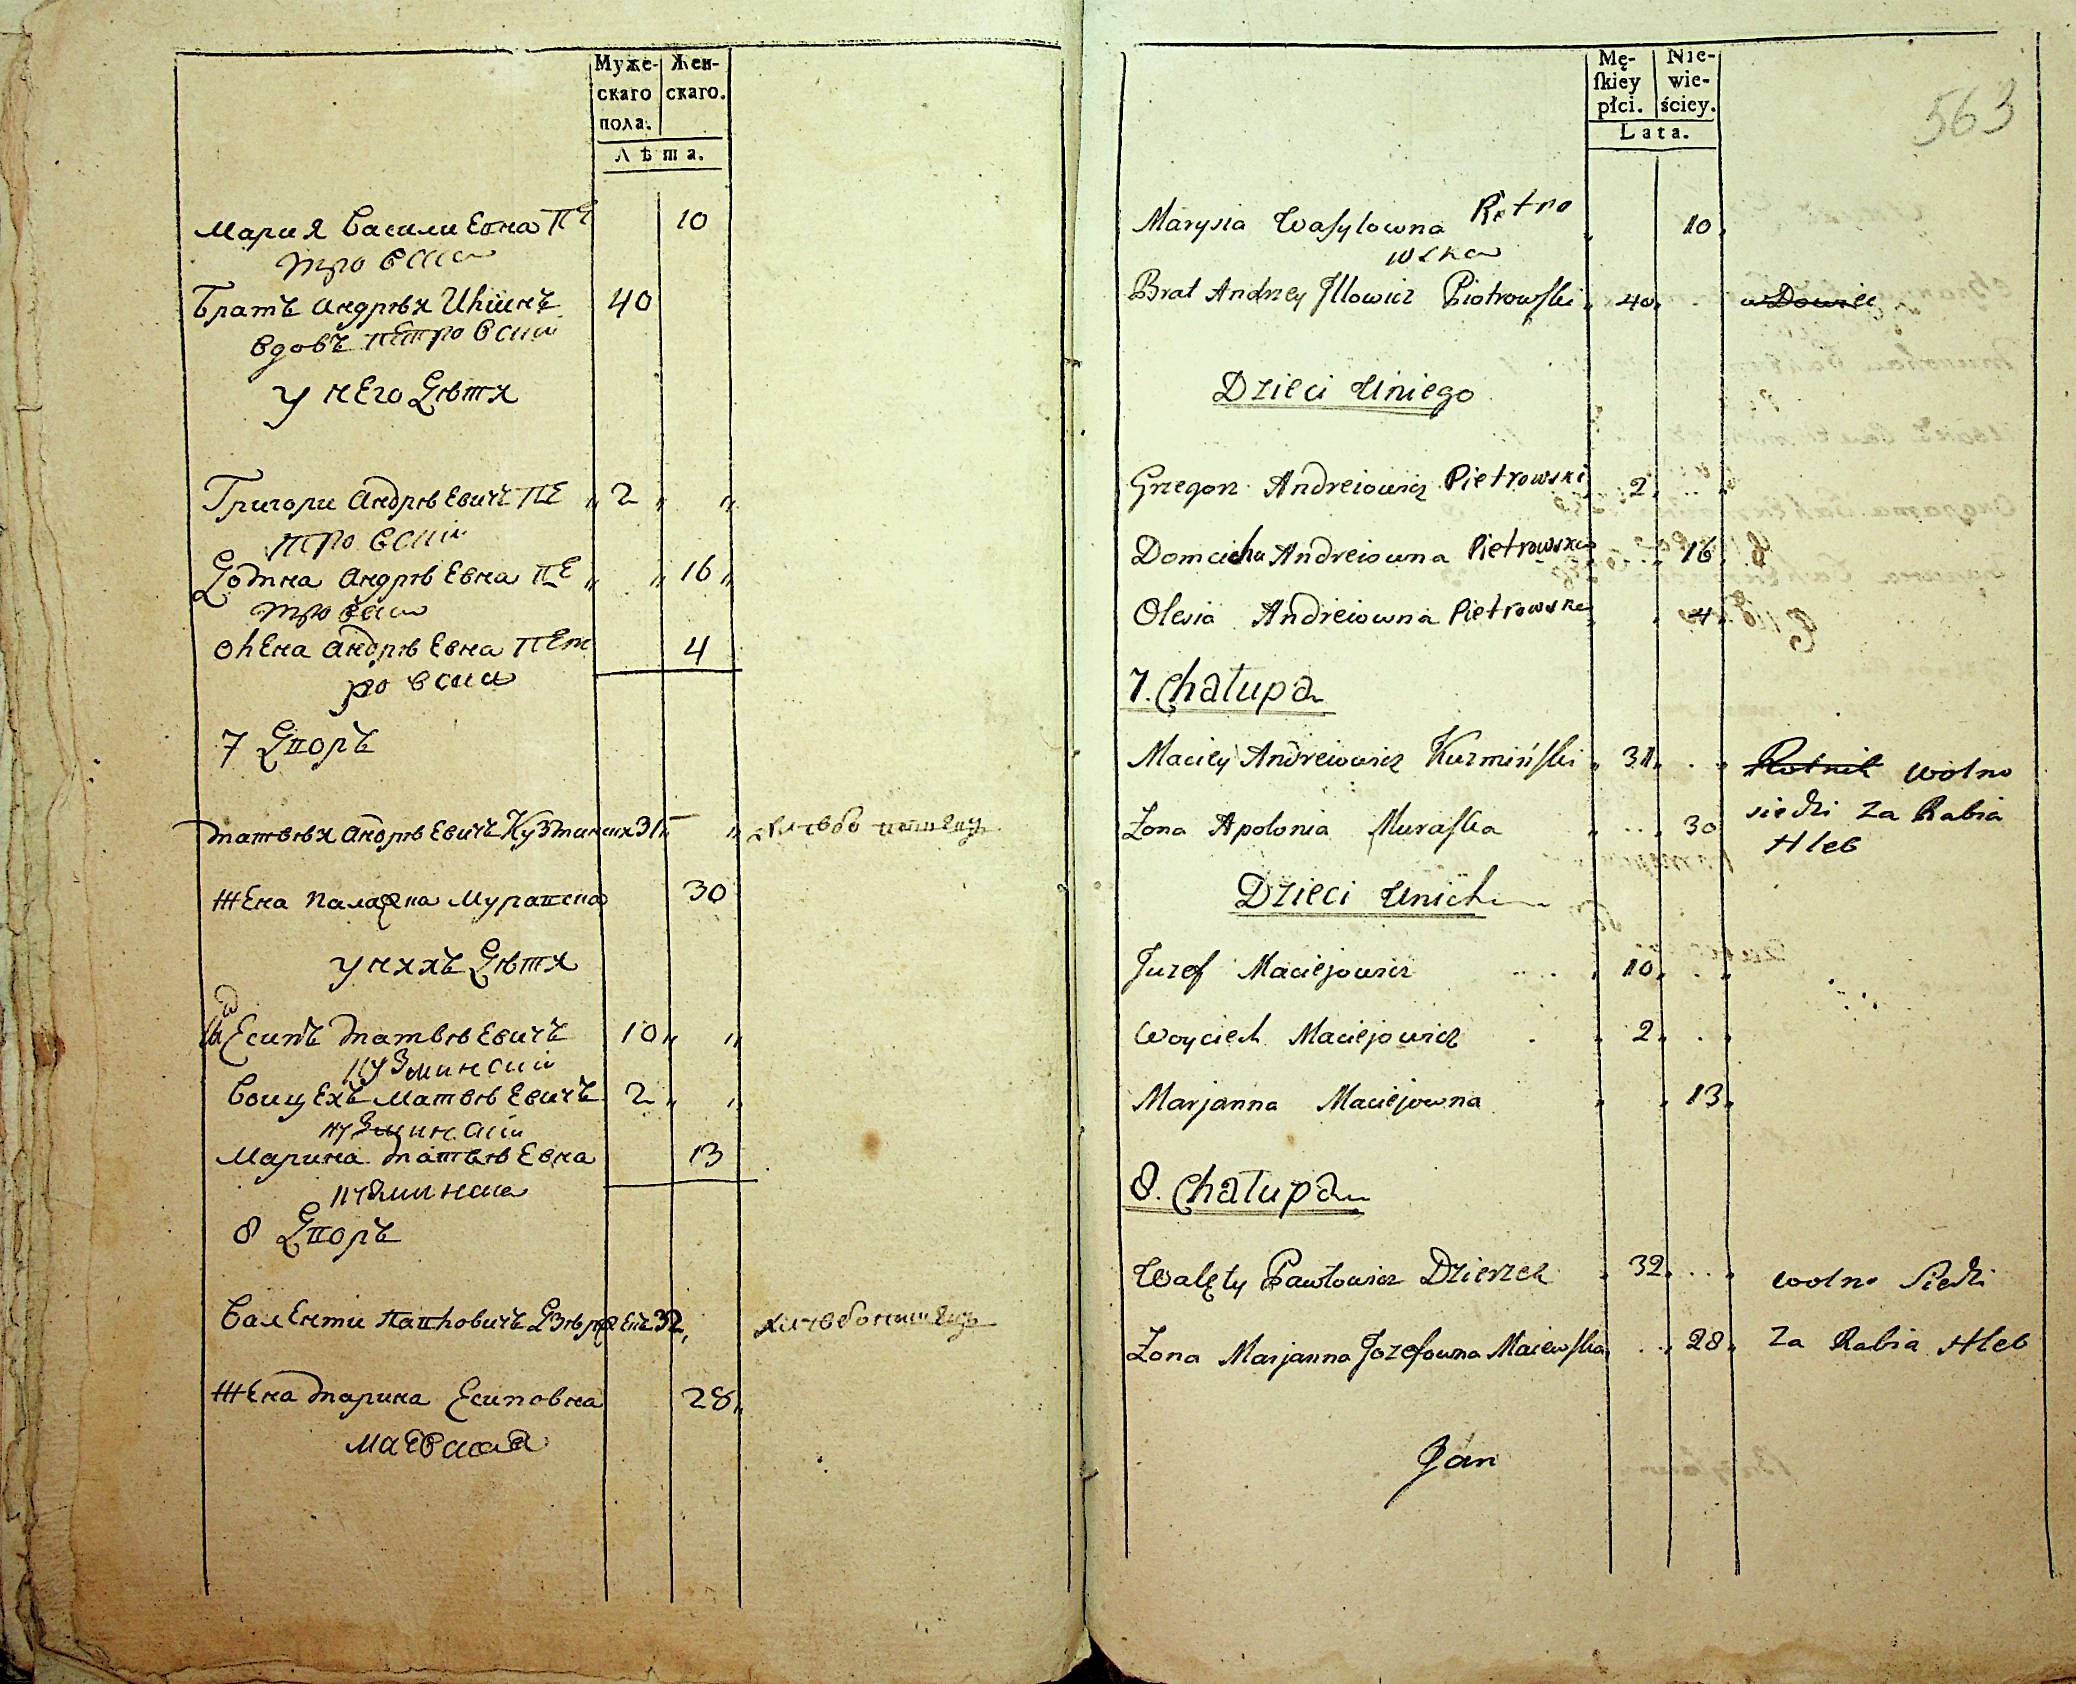 Муже-
скаго
пола.
Жен-
скаго.
Лѣта.
Мария Василиевна Пе 10
тровска
Братъ андрѣй Илиинъ 40
вдовъ петровский
у него дѣтй
Григори андрѣевичъ пе „ 2 „ „
тровский
андрѣевна пе „ „ 16 „
тровска
олена андрѣевна пет 4
ровска
7 Дворъ
матвѣй андрѣевичъ 31 „
жена Мурашска 30
у нихъ дѣтй
Есипъ матвѣевичъ 10 „ „
кузминский
воицехъ матвѣевичъ 2 „ „
кузминский
Марина матвѣевна 13
кузминска
8 Дворъ
валенти павловичъ 32 „
жена марина Есиповна 28 „
маевская
Mę-
ſkiey
płci.
Nie-
wie-
ściey.
Lata.
563
Marysia Wasylowna Petro 10 „
wska
Brat Andrzey Jllowicz Piotrowſki „ 40 „ .
Dzieci Uniego
Grzegorz Andreiowicz Pietrowski 2 „
Andreiowna Pietrowska 16 „
Olesia Andreiowna Pietrowska 4 „
7. Chałupa
Maciey Andreiowicz Kuzmińſki „ 31 „ . „ Rolnik wolno
Zona Apolonia Muraſka „ 30 siedzi za Rabia
Hleb
Dzieci Unich
Juzef Maciejowicz „ 10 „ . „
Woyciech Maciejowicz „ 2 „ . „
Marjanna Maciejowna „ „ 13 „
8. Chałupa
Walęty Pawłowicz Dzierzek „ 32 „ wolno siedzi
Zona Marjanna Jozefowna Maiewſka „ 28 „ za Rabia Hleb
Jan